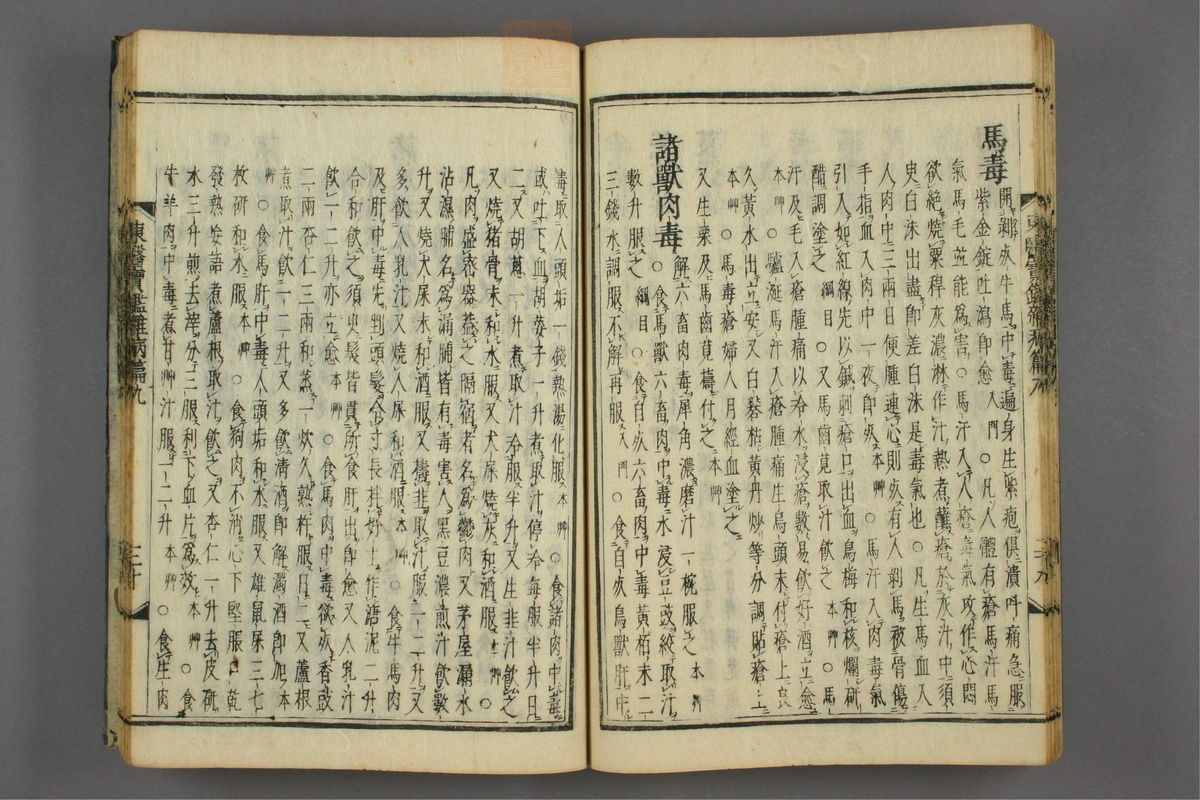 馬毒 開剝死牛馬中毒遍身生紫疱俱潰叫痛急服
紫金錠吐瀉即愈入門○凡人體有瘡馬汗馬
氣馬毛並能爲害○馬汗入人瘡毒氣攻作心悶
欲絶燒粟稈灰濃淋作汁熱煮蘸瘡於灰汁中須
臾白沫出盡即差白沫是毒氣也○凡生馬血入
人肉中三兩日便腫連心則死有人剥馬被骨傷
手指血入肉中一夜即死本艸○馬汗入肉毒氣
引入如紅線先以鍼刺瘡口出血烏梅和核爛硏
醋調塗之綱目○又馬齒莧取汁飲之本艸○馬
汗及毛入瘡腫痛以冷水浸瘡數易飲好酒立愈
本艸○驢涎馬汗入瘡腫痛生烏頭末付瘡上良
久黃水出立安又白礬枯黃丹炒等分調貼瘡上
本艸○馬毒瘡婦人月經血塗之
又生栗及馬齒莧擣付之本艸
諸獸肉毒 解六畜肉毒犀角濃磨汁一椀服之本艸
○食馬獸六畜肉中毒水浸豆豉絞取汁
數升服之綱目○食自死六畜肉中毒黃栢末二
三錢水調服不解再服入門○食自死鳥獸肝中
東醫寶鑑雜病篇九
二十九
毒取人頭垢一錢熱湯化服本艸○食諸肉中毒
或吐下血胡荽子一升煮取汁停冷每服半升日
二又胡葱一升煮取汁冷服半升又生韭汁飲之
又燒猪骨末和水服又犬屎燒灰和酒服本艸○
凡肉盛密器蓋之隔宿者名爲鬱肉又茅屋漏水
沾濕脯名爲漏脯皆有毒害人黑豆濃煎汁飲數
升又燒犬屎末和酒服又擣韭取汁服一二升又
多飲人乳汁又燒人屎和酒服本艸○食牛馬肉
及肝中毒先剉頭髮令寸長拌好土作溏泥二升
合和飲之須臾髮皆貫所食肝出即愈又人乳汁
飲一二升亦立愈本艸○食馬肉中毒欲死香豉
二兩杏仁三兩和蒸一炊久熟杵服日二又蘆根
煮取汁飲一二升又多飲清酒即解濁酒即加本
艸○食馬肝中毒人頭垢和水服又雄鼠屎三七
枚硏和水服本艸○食狗肉不消心下堅脹口乾
發熱妄語煮蘆根取汁飲之又杏仁一升去皮硏
水三升煎去滓分三服利下血片爲效本艸○食
牛羊肉中毒煮甘艸汁服一二升本艸○食生肉
東醫寶鑑雜病篇九
三十